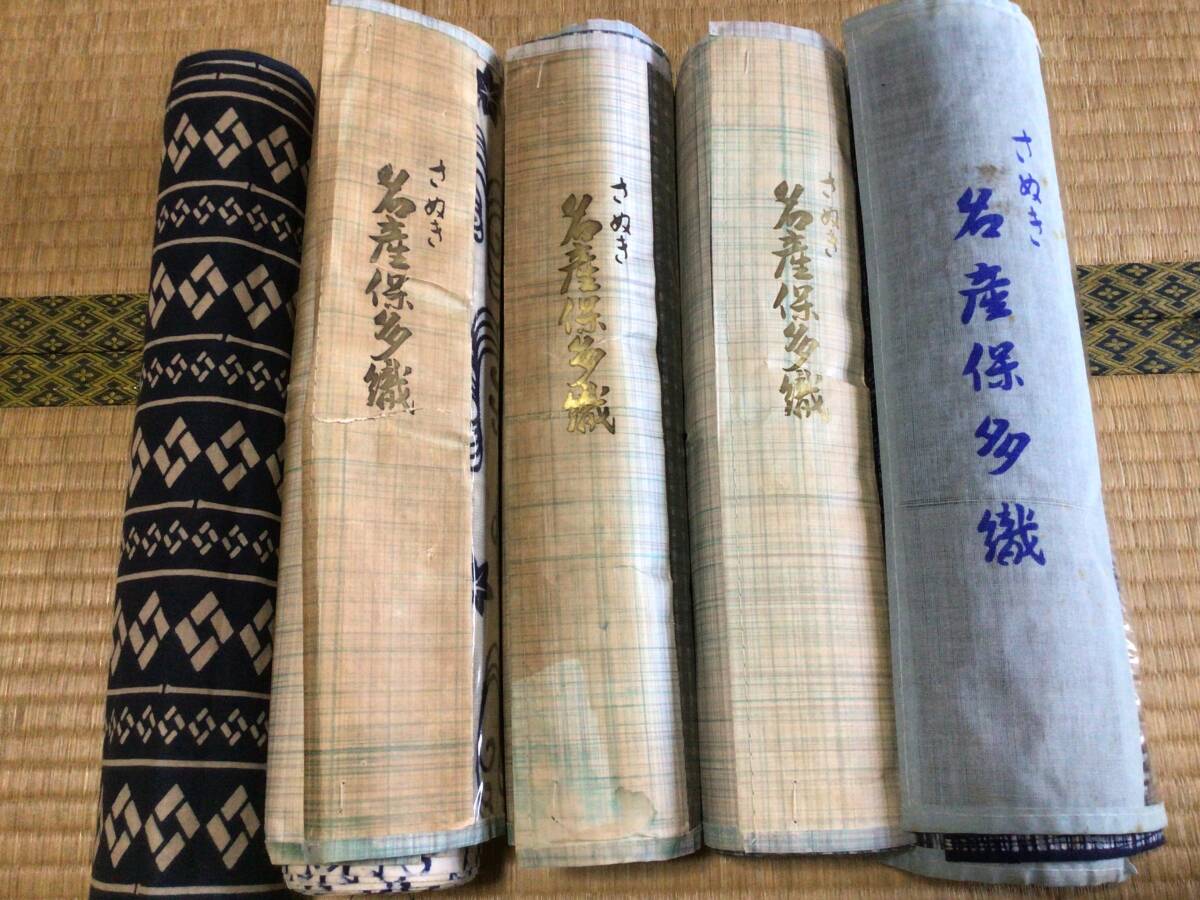 さぬき
名産保多織
さぬき
名産保多織
さぬき
名産保多織
さぬき
名産保多織